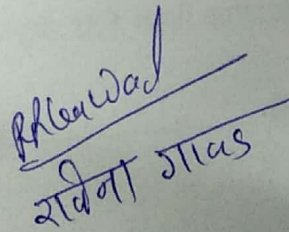 RRGawad
रविना गावड